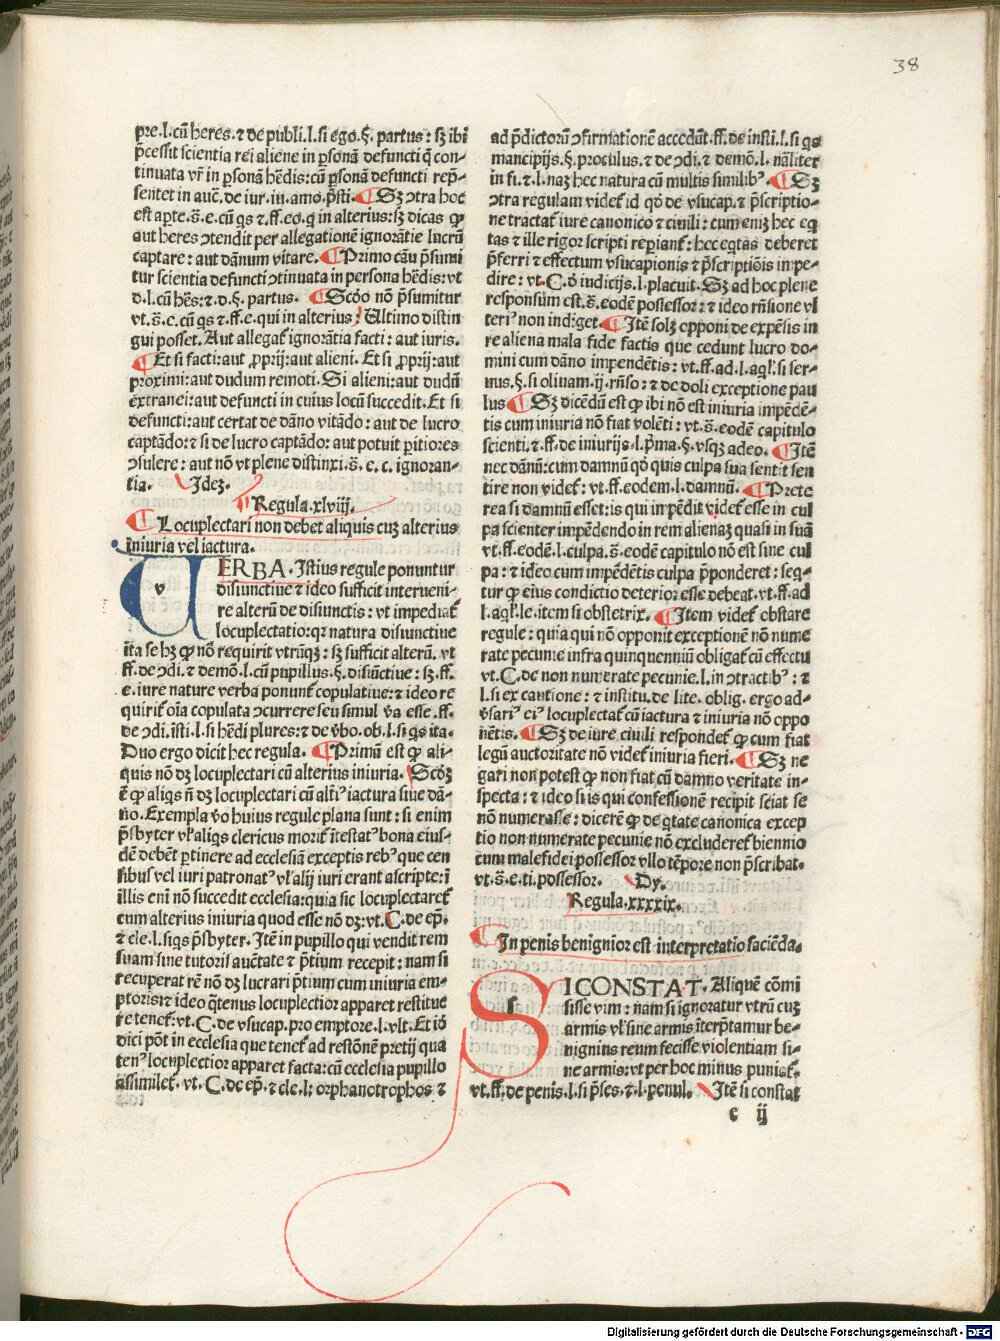 38
pre.l.cū heres.⁊ de publi.l.si ego.§. partus: sꝫ ibi
p̄cessit scientia rei aliene in ꝑsonā defuncti q̄ con-
tinuata vr̄ in ꝑsonā hēdis: cū ꝑsonā defuncti rep̄-
sentet in auc̄. de iur. iu. amo. p̄sti. ¶ Sꝫ ↄtra hoc
est aꝑte.s̄.e.cū qs ⁊ ff.eo.q in alterius: sꝫ dicas ꝙ
aut heres ↄtendit per allegationē ignorātie lucrū
captare: aut dānum vitare. ¶ Primo cāu p̄sumi
tur scientia defuncti ↄtinuata in persona hēdis: vt
d.l.cū hēs: ⁊ d.§. partus. ¶ Scdo nō p̄sumitur
vt.s̄.e.cū qs ⁊ ff.e.qui in alterius: Ultimo distin
gui posset. Aut allegat ignorātia facti: aut iuris.
¶ Et si facti: aut ꝓprij: aut alieni. Et si ꝓprij: aut
proximi: aut dudum remoti. Si alieni: aut dudū
extranei: aut defuncti in cuius locū succedit. Et si
defuncti: aut certat de dāno vitādo: aut de lucro
captādo: ⁊ si de lucro captādo: aut potuit ꝑitiores
ↄsulere: aut nō vt plene distinxi.s̄. e. c. ignoran-
tia. Ideꝫ.
¶ Regula.xlviij.
¶ Locupletari non debet aliquis cuꝫ alterius
iniuria vel iactura.
v
UERBA. Istius regule ponuntur
disiunctiue ⁊ ideo sufficit interueni-
re alterū de disiunctis: vt impediat
locuplectatio: qꝛ natura disiunctiue
ita se hꝫ ꝙ nō requirit vtrūqꝫ: sꝫ sufficit alterū. vt
ff. de ↄdi. ⁊ demō.l.cū pupillus.§. disiūctiue: sꝫ.ff.
e. iure nature verba ponunt copulatiue: ⁊ ideo re
quirit oīa copulata ↄcurrere seu simul v̄a esse.ff.
de ↄdi.isti.l.si hēdi plures: ⁊ de v̄bo.ob.l.si qs ita.
Duo ergo dicit hec regula. ¶ Primū est ꝙ ali-
quis nō dꝫ locuplectari cū alterius iniuria. Scdꝫ
ē ꝙ aliqs n̄ dꝫ locuplectari cū alti iactura siue dā-
no. Exempla v̄o huius regule plana sunt: si enim
p̄sbyter vl aliqs clericus morit ītestat bona eius-
dē debēt ꝑtinere ad ecclesiā exceptis reb que cen
sibus vel iuri patronat vl alij iuri erant ascripte: ī
illis eni nō succedit ecclesia: quia sic locuplectaret
cum alterius iniuria quod esse nō dꝫ: vt. C. de ep̄.
⁊ cle.l.siqs p̄sbyter. Itē in pupillo qui vendit rem
suam sine tutoris auctate ⁊ p̄tium recepit: nam si
recuperat rē nō dꝫ lucrari p̄tium cum iniuria em-
ptoris: ⁊ ideo qtenus locuplectior apparet restitue
re tenet: vt. C. de vsucap. pro emptore.l.vlt. Et iō
dici pōt in ecclesia que tenet ad restōnē pretij qua
ten locuplectior apparet facta: cū ecclesia pupillo
assimilet. vt. C. de ep̄. ⁊ cle.l: orphanotrophos ⁊
ad p̄dictorū ↄfirmationē accedūt.ff. de insti.l.si qs
mancipijs.§.proculus.⁊ de ↄdi.⁊ demō.l. nāliter
in fi.⁊.l.naꝫ hec natura cū multis similib. ¶ Sꝫ
ↄtra regulam videt id qd de vsucap.⁊ p̄scriptio-
ne tractat iure canonico ⁊ ciuili: cum eniꝫ hec eq
tas ⁊ ille rigor scripti reꝑiant: hec eqtas deberet
p̄ferri ⁊ effectum vsucapionis ⁊ p̄scriptiōis impe-
dire: vt. C. d̄ indicijs.l.placuit. Sꝫ ad hoc plene
responsum est.s̄.eodē possessor: ⁊ ideo rn̄sione vl
teri non indiget. ¶ Itē solꝫ opponi de expēsis in
re aliena mala fide factis que cedunt lucro do-
mini cum dāno impendētis: vt.ff.ad.l.aql.si ser-
uus.§.si oliuam.ij.rn̄so: ⁊ de doli exceptione pau
lus ¶ Sꝫ dicēdū est ꝙ ibi nō est iniuria impēdē-
tis cum iniuria nō fiat volēti: vt.s̄.eodē capitulo
scienti.⁊.ff.de iniurijs.l.p̄ma.§.vsqꝫ adeo. ¶ Itē
nec dānū: cum damnū qd quis culpa sua sentit sen
tire non videt: vt.ff.eodem.l.damnū. ¶ Prete
rea si damnū esset: is qui impēdit videt esse in cul
pa scienter impēdendo in rem alienaꝫ quasi in suā
vt.ff.eodē.l.culpa.s̄.eodē capitulo nō est sine cul
pa: ⁊ ideo cum impēdētis culpa p̄ponderet: seq-
tur ꝙ eius condictio deterior esse debeat.vt.ff.ad
l.aql.le.item si obstetrix. ¶ Item videt obstare
regule: quia qui nō opponit exceptionē nō nume
rate pecunie infra quinquenniū obligat cū effectu
vt. C. de non numerate pecunie.l.in ↄtractib: ⁊
l.si ex cautione: ⁊ institu.de lite. oblig. ergo ad-
v̄sari ei locuplectat cū iactura ⁊ iniuria nō oppo
nētis. ¶ Sꝫ de iure ciuili respondet ꝙ cum fiat
legū auctoritate nō videt iniuria fieri. ¶ Sꝫ ne
gari non potest ꝙ non fiat cū damno veritate in-
specta: ⁊ ideo si is qui confessionē recipit sciat se
nō numerasse: dicerē ꝙ de qtate canonica excep
tio non numerate pecunie nō excluderet biennio
cum malefidei possessor vllo tēpore non p̄scribat.
vt.s̄.e.ti.possessor. Dy.
Regula.xxxxix.
¶ In penis benignior est interpretatio faciēda.
s
SI CONSTAT. Aliquē cōmi
sisse vim: nam si ignoratur vtrū cuꝫ
armis vl sine armis īterp̄tamur be-
nignius reum fecisse violentiam si-
ne armis: vt per hoc minus puniat.
vt.ff.de penis.l.si p̄ses.⁊.l.penul. Itē si constat
e ij
Digitalisierung gefördert durch die Deutsche Forschungsgemeinschaft - DFG